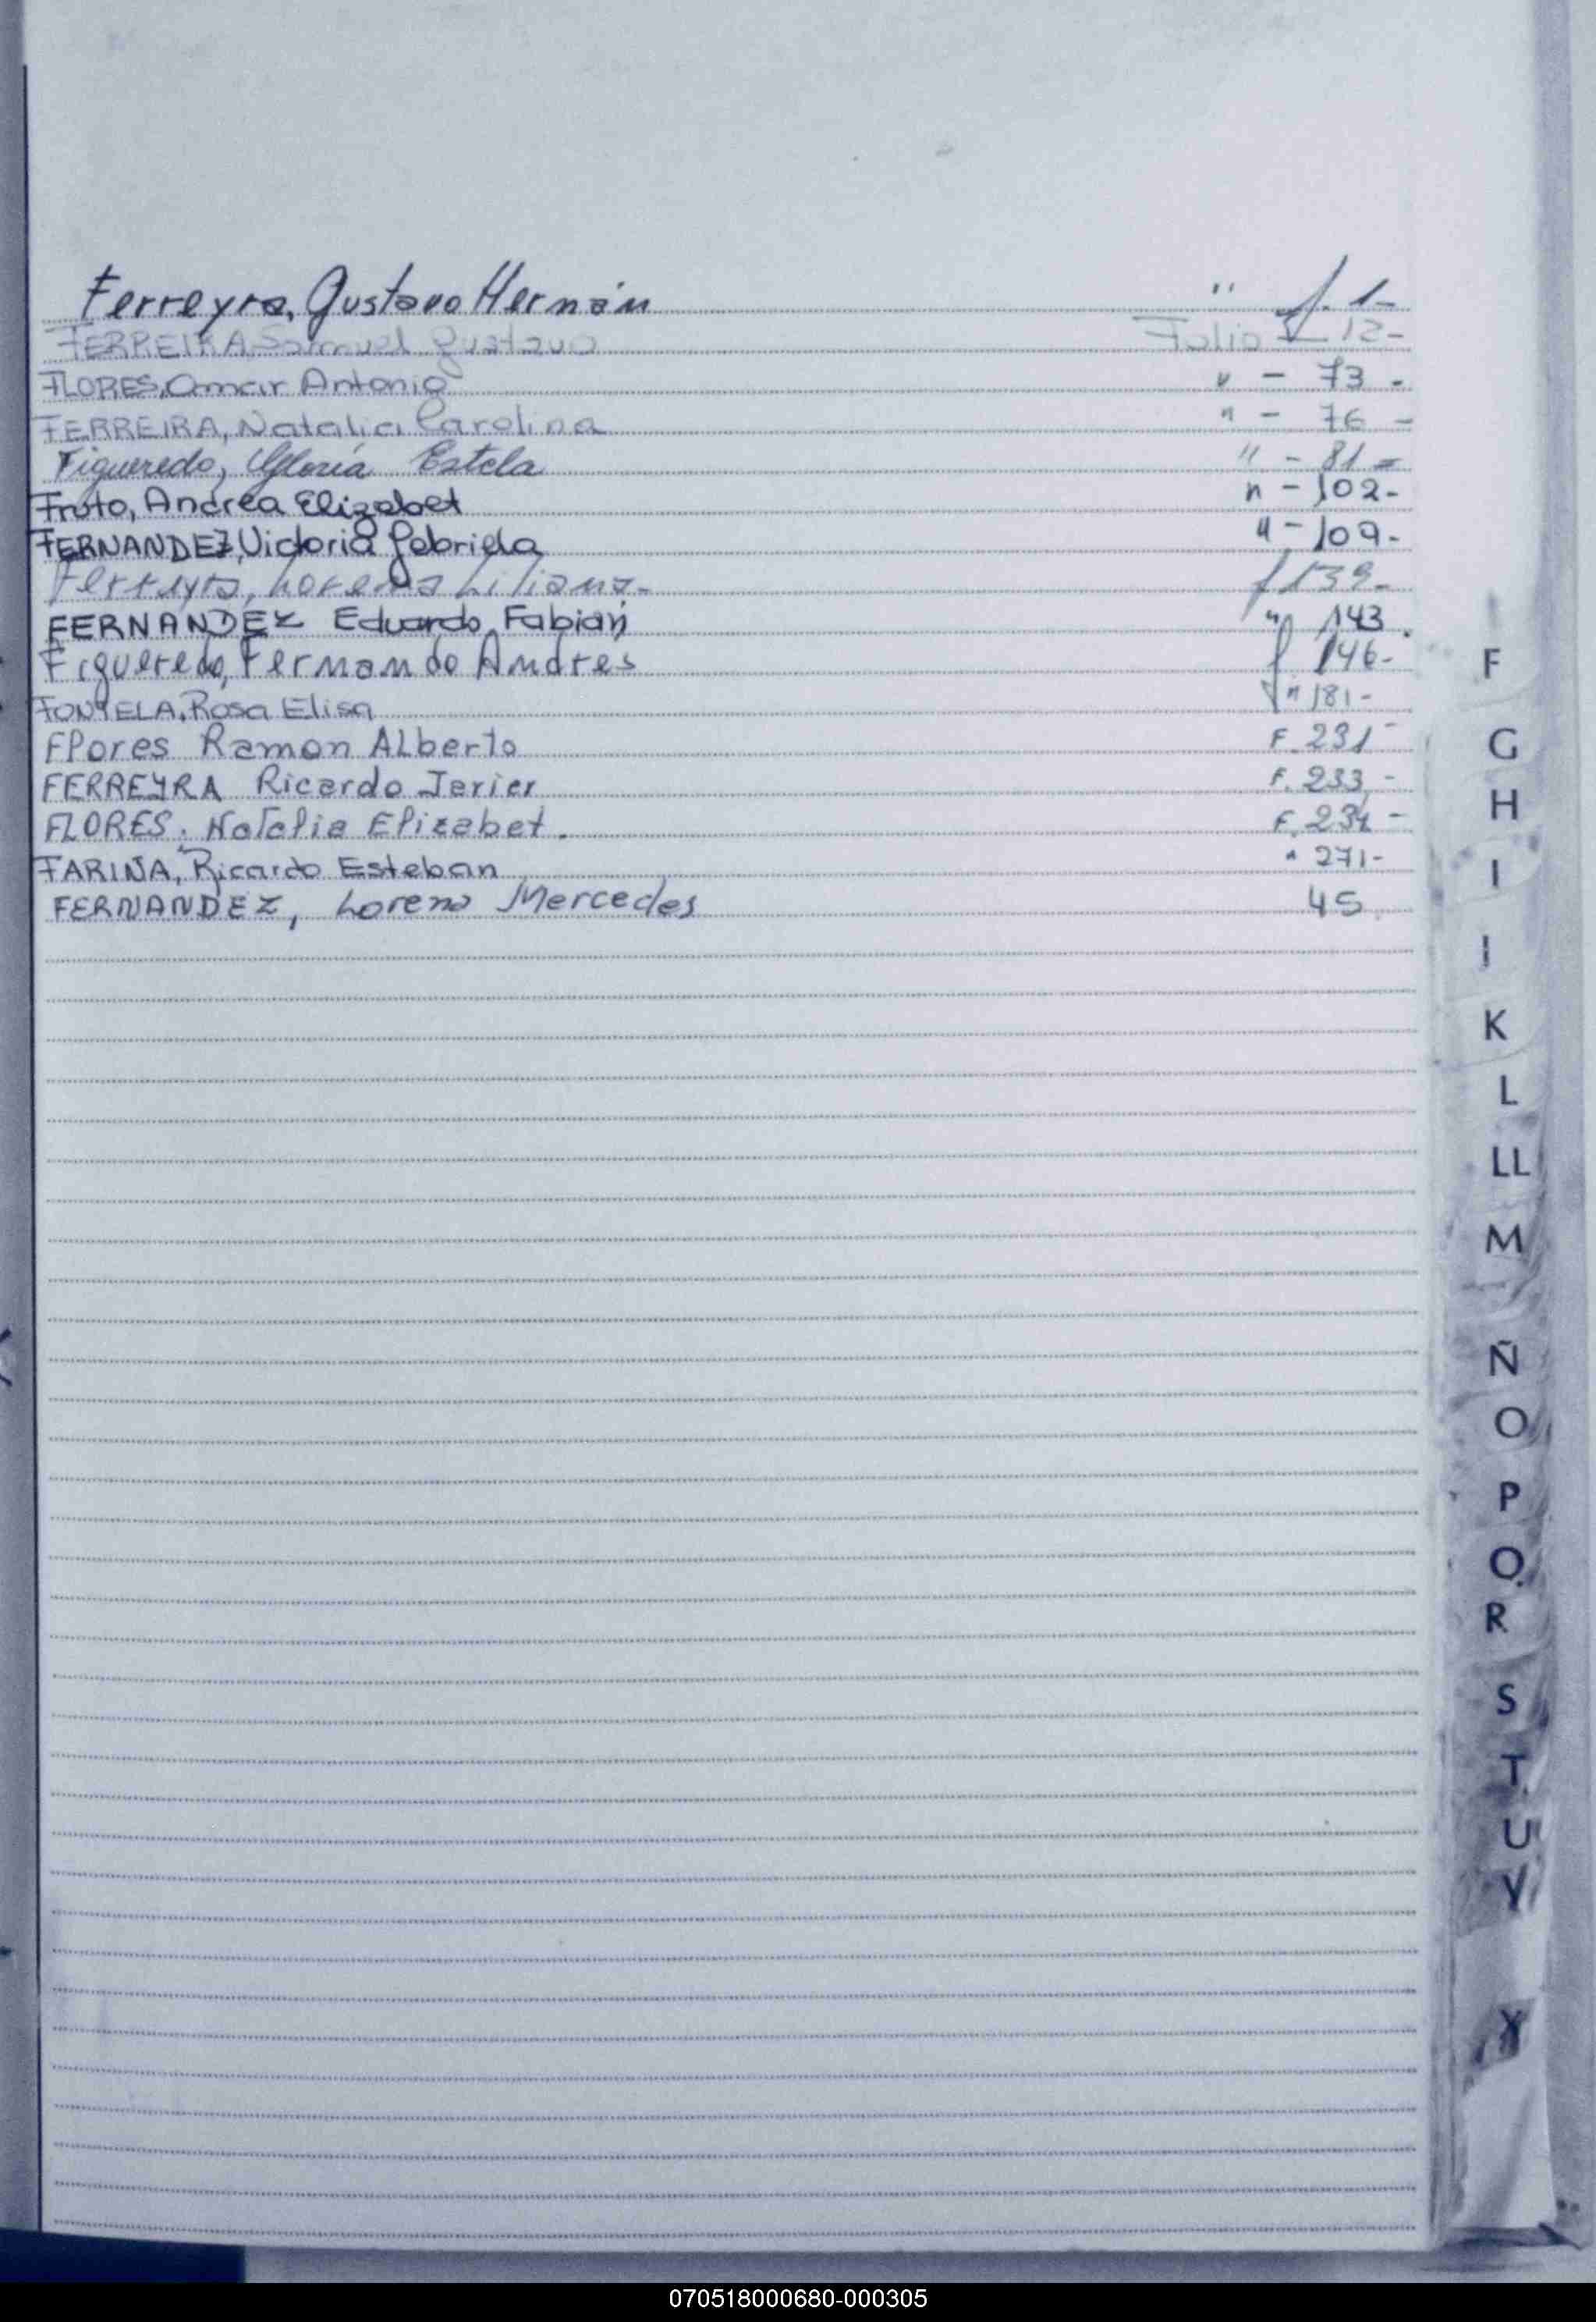 Ferreyra, Gustavo Hernán " f. 1-
FERREIRA, Samuel Gustavo Folio - 12-
FLORES, Omar Antonio " - 73 -
FERREIRA, Natalia Carolina " - 76 -
Figueredo, Gloria Estela " - 81 -
Fruto, Andrea Elizabet " - 102-
FERNANDEZ, Victoria Gabriela " - 109-
Ferreyra, Lorena Liliana- f 139-
FERNANDEZ Eduardo Fabian " 143
Figueredo, Fernando Andres f 146-
FONTELA, Rosa Elisa " 181-
Flores Ramon Alberto F. 231-
FERREYRA Ricardo Javier F. 233 -
FLORES. Natalia Elizabet. F. 234 -
FARIÑA, Ricardo Esteban " 271-
FERNANDEZ, Lorena Mercedes 45
F
G
H
I
J
K
L
LL
M
Ñ
O
P
Q
R
S
T
U
V
Y
070518000680-000305